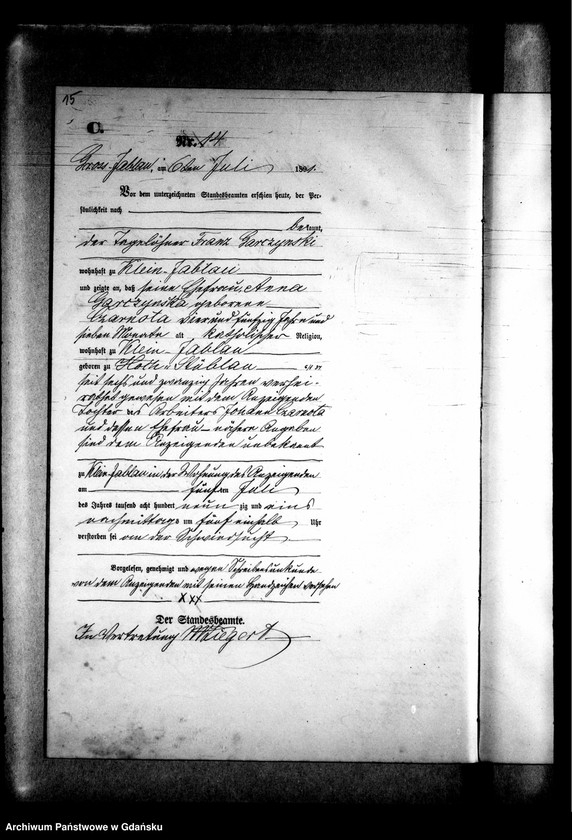 15
C.
Nr. 14
Gross-Jablau, am 6ten Juli 1891.
Vor dem unterzeichneten Standesbeamten erschien heute, der Per-
sönlichkeit nach
bekannt,
der Tagelöhner Franz Garczynski
wohnhaft zu Klein-Jablau
und zeigte an, daß seine Ehefrau, Anna
Garczynska geborene
Czarnota vierundfünfzig Jahre und
sieben Monate alt katholischer Religion,
wohnhaft zu Klein-Jablau
geboren zu Stüblau
seit sechs und zwanzig Jahren verhei-
rathet gewesen mit dem Anzeigenden
Tochter des Arbeiters Johann Czarnota
und dessen Ehefrau nähere Angaben
sind dem Anzeigenden unbekannt
zu Klein Jablau in der Wohnung des Anzeigenden
am fünften Juli
des Jahres tausend acht hundert neun zig und eins
nachmittags um fünf einhalb Uhr
verstorben sei an der Schwindsucht
Vorgelesen, genehmigt und wegen Schreibensunkunde
von dem Anzeigenden mit seinen Handzeichen versehen
XXX
Der Standesbeamte.
In Vertretung
Archiwum Państwowe w Gdańsku